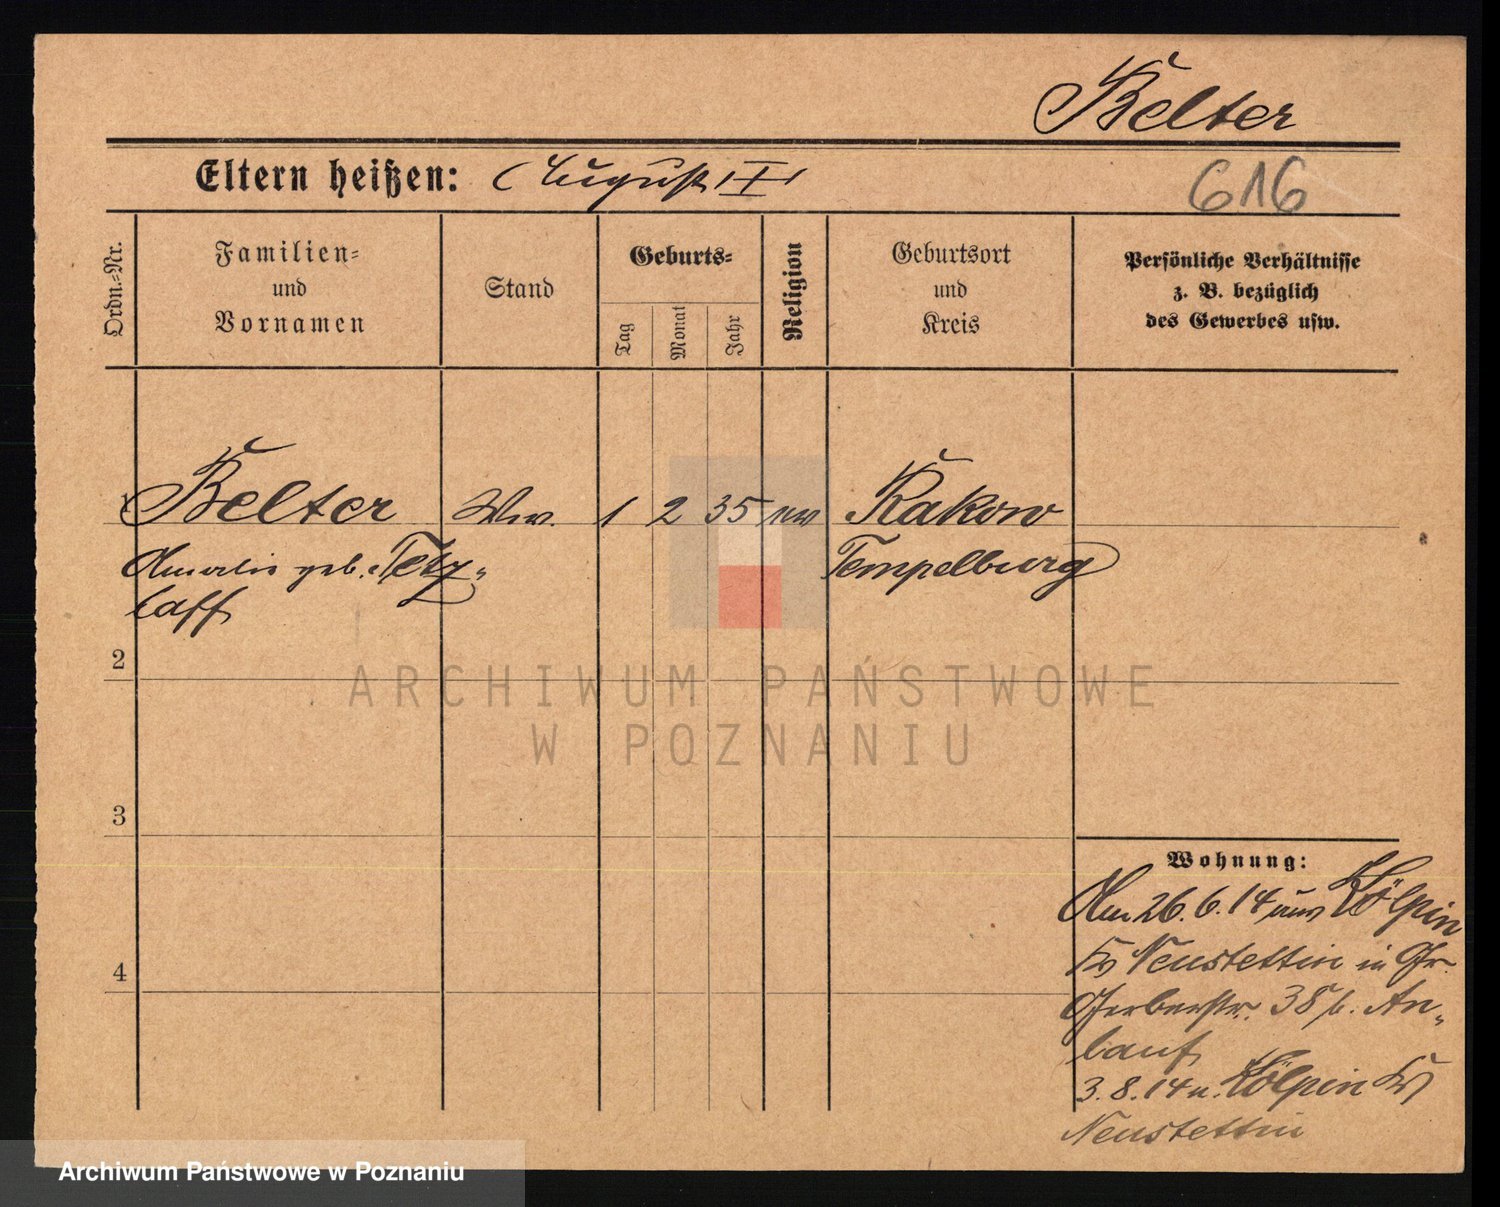 Belter
Eltern heißen: (August II)
616
Ordn.-Nr.
Familien-
und
Vornamen
Stand
Geburts-
Tag
Monat
Jahr
Religion
Geburtsort
und
Kreis
Persönliche Verhältnisse
z. B. bezüglich
des Gewerbes usw.
1 Belter Ww. 1 2 35 ev Rakow
Amalie geb. Tetz- Tempelburg
laff
2
3
4
Wohnung:
Am 26.6.14 aus Kölpin
Kr Neustettin in Gr.
Gerberstr. 38 b. An-
lauf
3.8.14 n. Kölpin Kr
Neustettin
ARCHIWUM PAŃSTWOWE
W POZNANIU
Archiwum Państwowe w Poznaniu